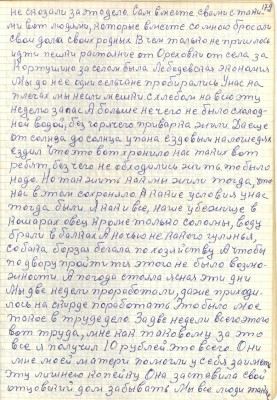 не сказали за это дело. Сам вместе своими таки-
ми вот людьми, которые вместе со мною бросали
свои дома своих родных. В чем только не пришлось
идти пешки расстояние от Ореховки от села за
за селом была Лебедевская экономия
Мы до нее пробирались. У нас на
плечах мы несли мешки с хлебом на всю эту
неделю запас. А больше нечего не было с холод-
ной водой, без горячего приварка жили. Да еще
от солнца до солнца угана ездовым на лошадях
ездил. Что это вот хранило нас таких вот
ребят, без чего не обходились жить, то было
надо. Но так жить нам не жили тогда, что
нас в этом сохранило. А такие условия у нас
тогда были. Я они все, наше убежище в
кошарах овец. Кроме только соломы, воду
брали в балках. А ночью не такого гулянья,
собака борзая бегала по хозяйству. А чтобы
по двору пройти то этого не было возмо-
жности. А погода стояла ясная эти дни
Мы две недели проработали, даже приходи-
лось на скирде поработать. Это было мое
такое в труде дело. За две недели всего этого
вот труда, мне как таковому за это
все я получил 10 рублей это всего. Они
мне моей матери помогли у себя заиметь
эту лишнею копейку. Она заставила свой
отцовский дом забывать. Мы все люди таки